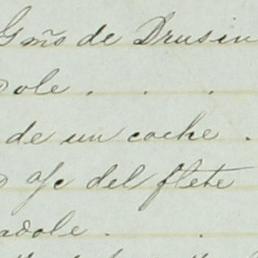 Gmo de Drusin
ole . . .
de un coche .
a/c del flete
adole . .